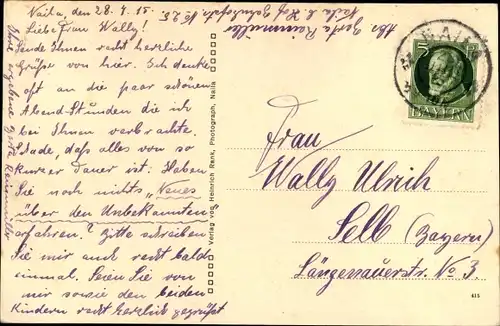 Naila, den 28. 4. 15.
Liebe Frau Wally!
Sende Ihnen recht herzliche
Grüsse von hier. Ich denke
oft an die paar schönen
Abend-Stunden die ich
bei Ihnen verbrachte.
Schade, dass alles von so
kurzer Dauer ist. Haben
Sie noch nichts "Neues
über den Unbekannten
erfahren? Bitte schreiben
Sie mir auch recht bald
einmal. Seien Sie von
mir sowie den beiden
Kindern recht herzlich gegrüßt
Ihre ergebene Berta
Abs.
Naila b. Hof Bahnhofstr. No 25
Verlag von Heinrich Rank, Photograph, Naila
5
BAYERN
Frau
Wally Ulrich
Selb (Bayern)
Längenauerstr. No. 3.
415